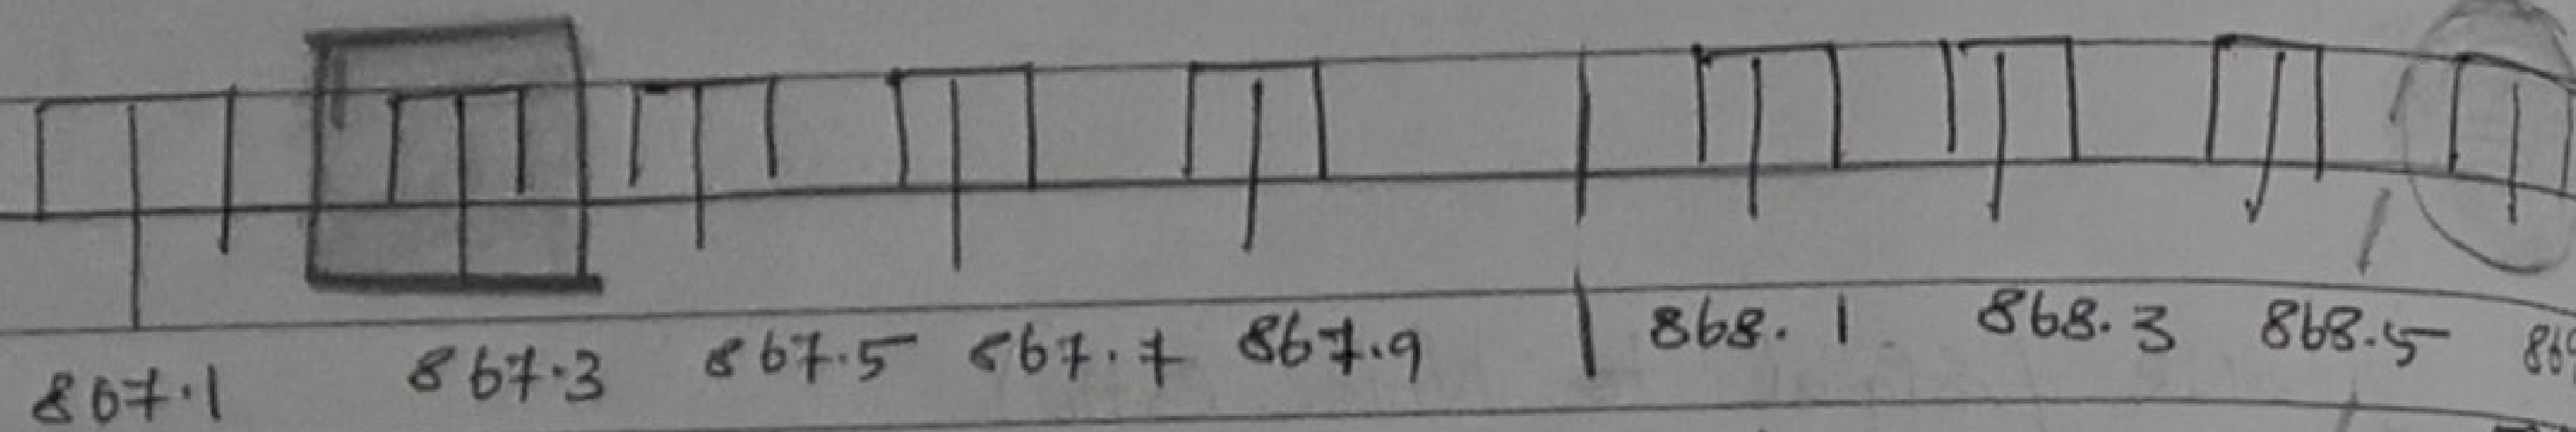 867.1 867.3 867.5 867.7 867.9 868.1 868.3 868.5